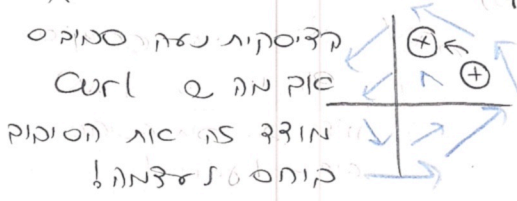 הדיסקית נעה סביב ס
אבל מה ש Curl
מודד זה את הסיבוב
ביחס לעצמה!